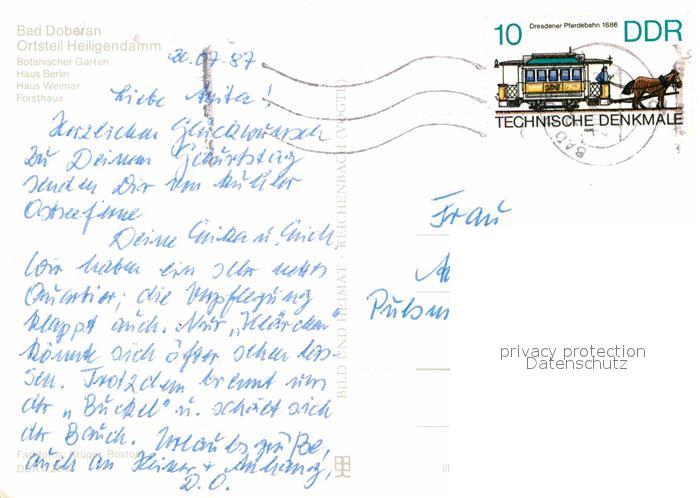 Bad Doberan
Ortsteil Heiligendamm
Botanischer Garten
Haus Berlin
Haus Weimar
Forsthaus
20.07.87
Liebe Anita!
Herzlichen Glückwunsch
zu Deinem Geburtstag
senden Dir von kühler
Ostseeferne
Deine u.
Wir haben ein sehr nettes
Quartier; die Verpflegung
klappt auch. Nur „Klärchen“
könnte sich öfter sehen las-
sen. Trotzdem brennt uns
der „Buckel“ u. schält sich
der Bauch. Urlaubsgrüße,
auch an Heiner + Anhang,
D.O.
Farbfotos: Krüger, Rostock
BILD UND HEIMAT · REICHENBACH (VOGTL)
10 Dresdener Pferdebahn 1886 DDR
TECHNISCHE DENKMALE
1986
BAD
Frau
A
Pulsn
privacy protection
Datenschutz
III